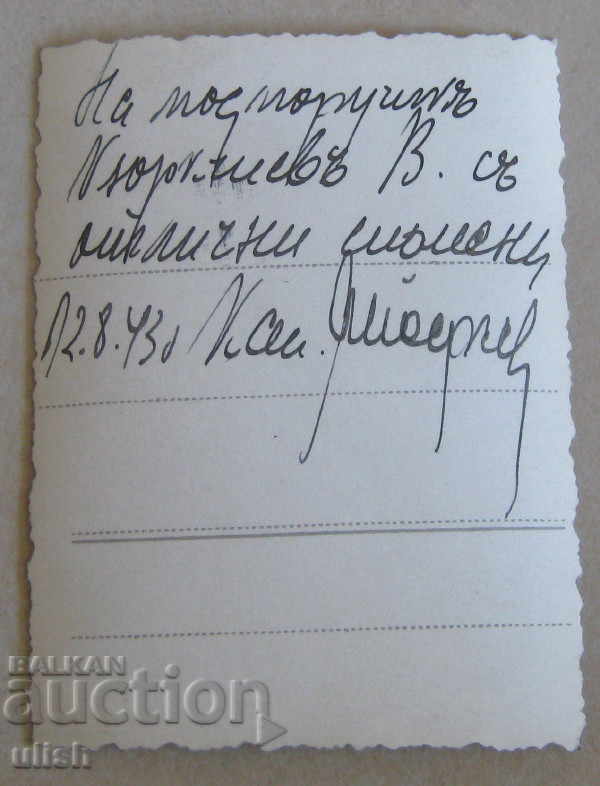 На подпоручикъ
Кюркчиевъ В. съ
отлични спомени
12.8.43г Кап.
BALKAN
auction
ulish